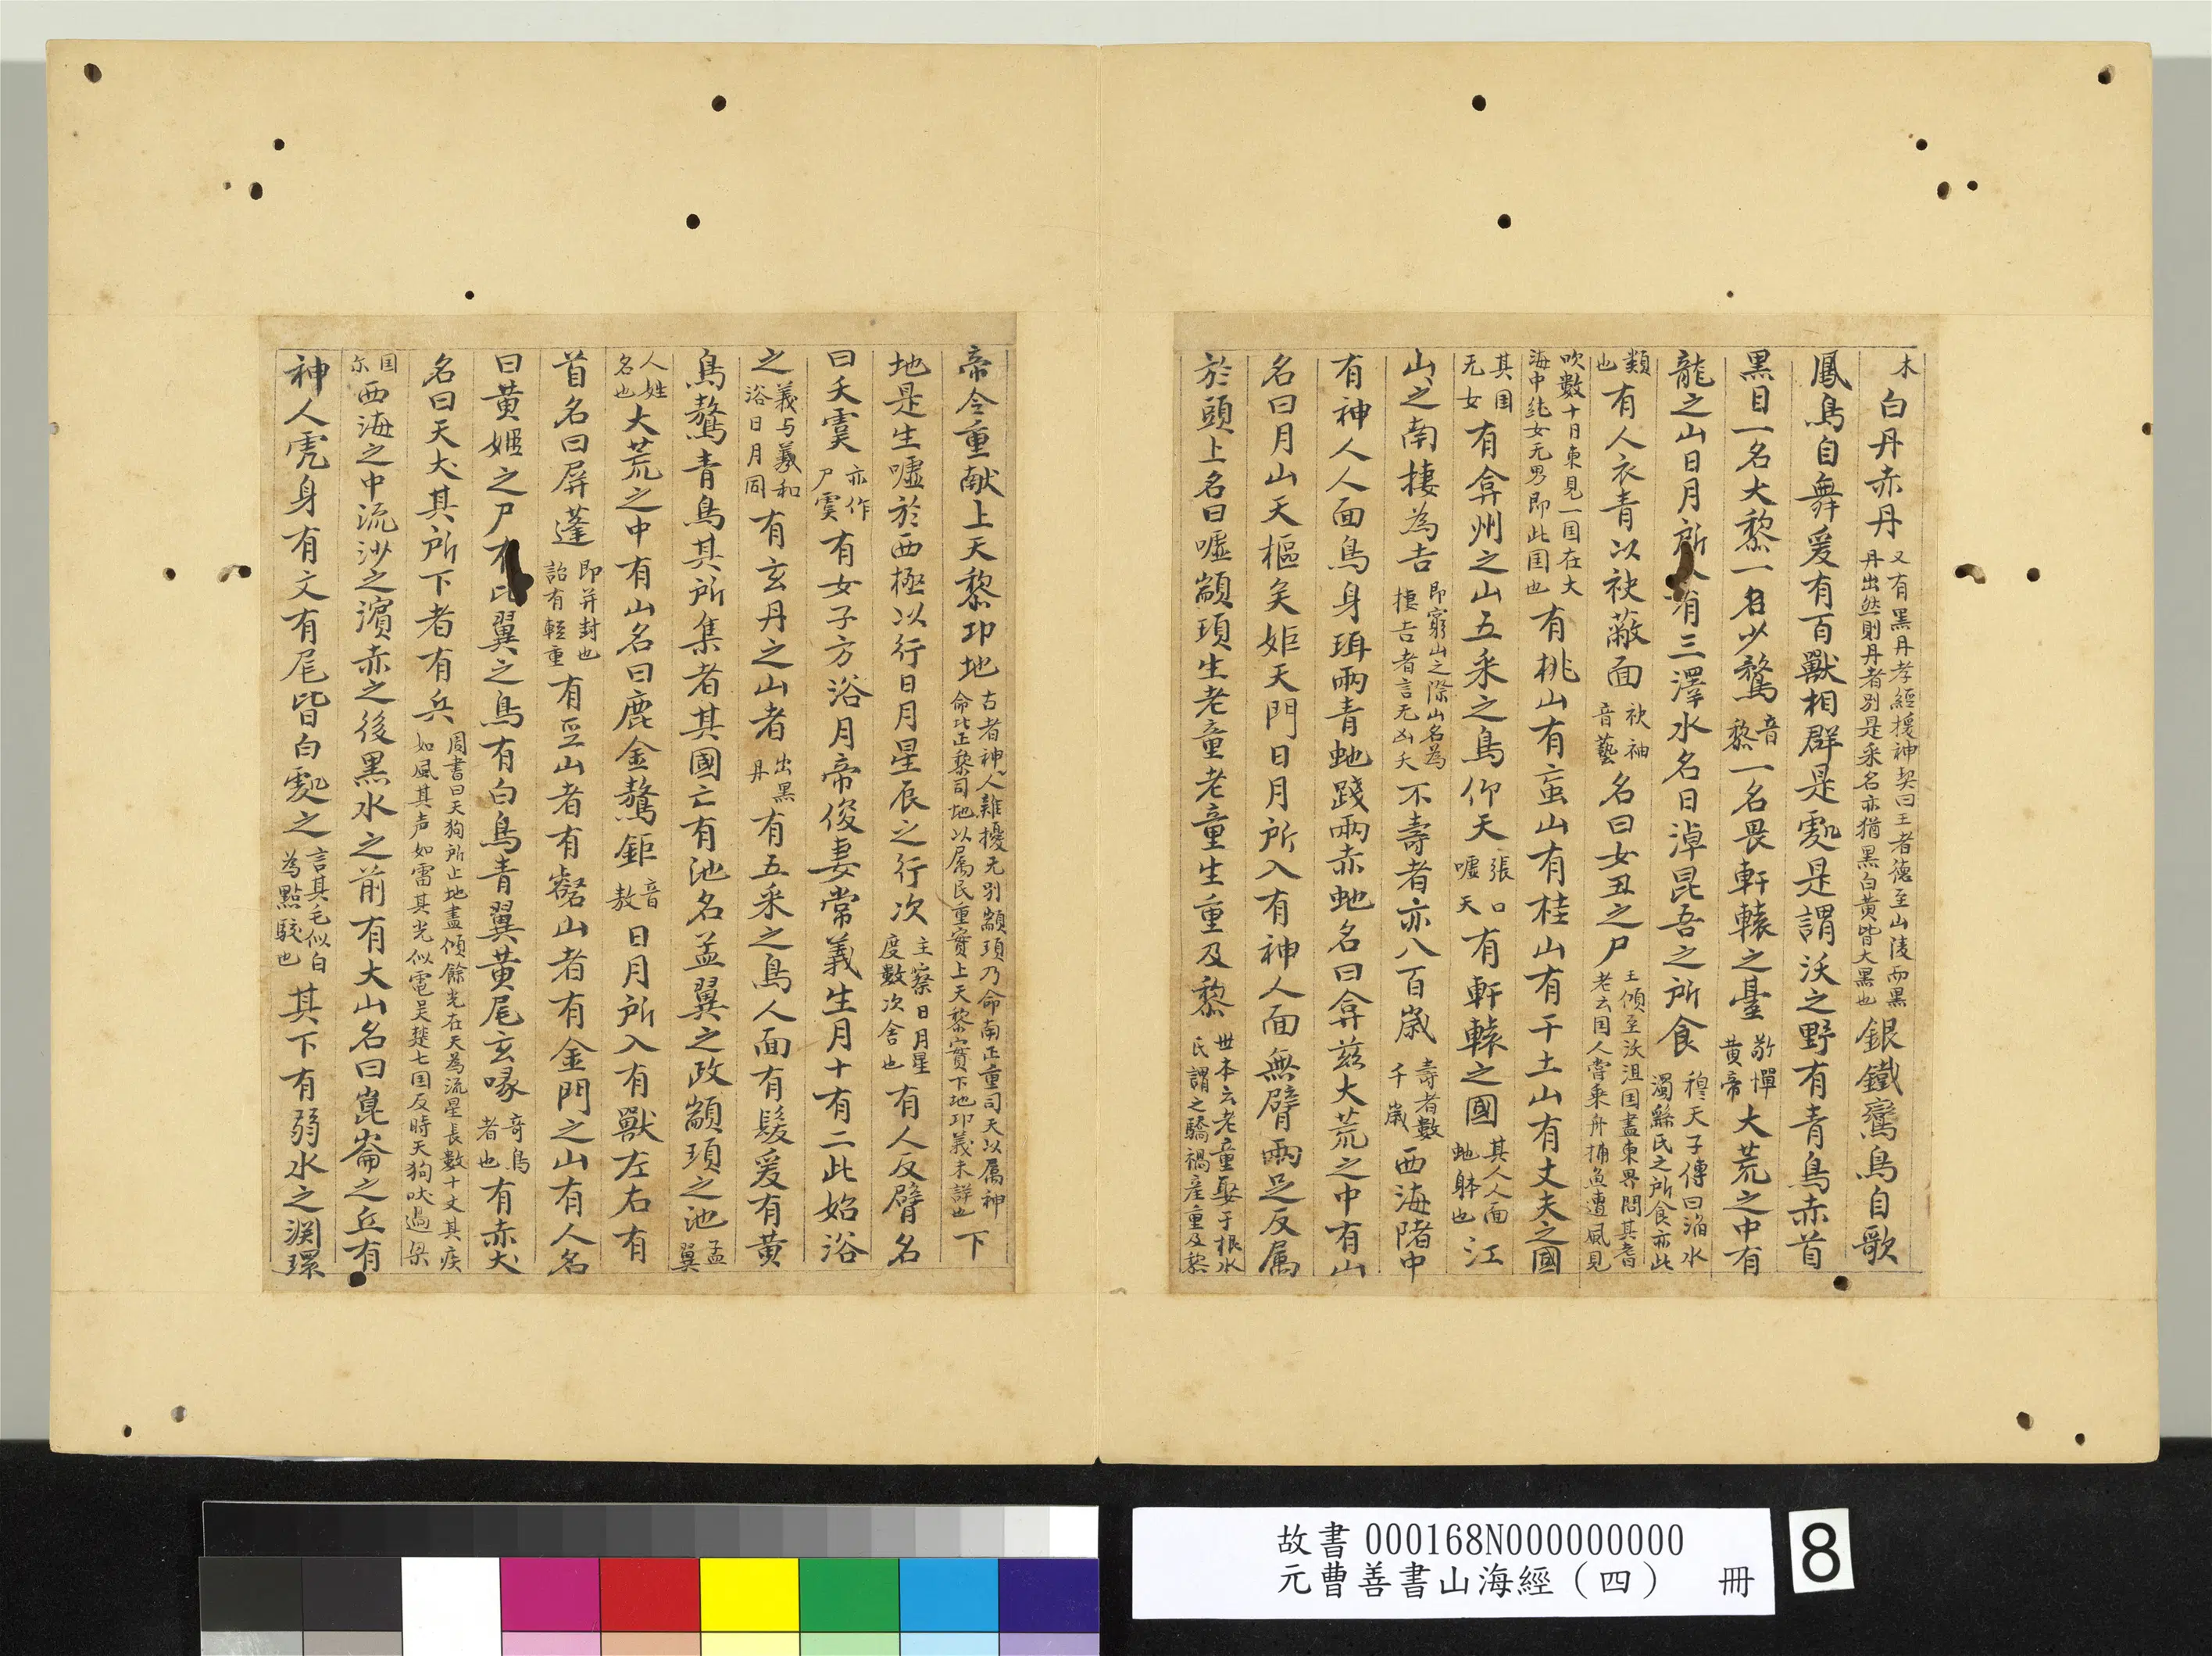 木白丹赤丹又有黑丹孝經援神契曰王者德至山陵而黑丹出然則丹者別是采名亦猶黑白黃皆大黑也銀鐵鸞鳥自歌
鳳鳥自舞爰有百獸相群是處是謂沃之野有青鳥赤首
黑目一名大鵹一名少鵹音黎一名畏軒轅之臺敬憚黃帝大荒之中有
龍之山日月所入有三澤水名曰淖昆吾之所食穆天子傳曰滔水濁繇氏之所食亦此
類也有人衣青以袂蔽面袂袖音藝名曰女丑之尸王傾至沃沮国盡東界問其耆老云国人嘗乘舟捕魚遭風見
吹數十日東見一国在大海中純女无男即此国也有桃山有䖟山有桂山有于土山有丈夫之國
其国无女有弇州之山五采之鳥仰天張口噓天有軒轅之國其人人面虵躰也江
山之南棲為吉即窮山之際山名為棲吉者言无凶夭不壽者亦八百歲壽者數千歲西海陼中
有神人人面鳥身珥兩青虵踐兩赤虵名曰弇茲大荒之中有山
名曰月山天樞矣姖天門日月所入有神人面無臂兩足反屬
於頭上名曰噓顓頊生老童老童生重及黎世本云老童娶于根水氏謂之驕禍產重及黎
帝令重献上天黎卭地古者神人雜擾无別顓頊乃命南正重司天以属神命北正黎司地以属民重寔上天黎寔下地卭義未詳也下
地是生噓於西極以行日月星辰之行次主察日月星度數次舍也有人反臂名
曰天虞亦作尸虞有女子方浴月帝俊妻常義生月十有二此始浴
之義与羲和浴日月同有玄丹之山者出黑丹有五采之鳥人面有髮爰有黃
鳥鶩青鳥其所集者其國亡有池名孟翼之政顓頊之池孟翼
人姓名也大荒之中有山名曰鹿金鶩鉅音敖日月所入有獸左右有
首名曰屏蓬即并封也詒有輕重有巫山者有壑山者有金門之山有人名
曰黃姬之尸有比翼之鳥有白鳥青翼黃尾玄喙奇鳥者也有赤犬
名曰天犬其所下者有兵周書曰天狗所止地盡傾餘光在天為流星長數十丈其疾如風其声如雷其光似電吴楚七国反時天狗吠過梁
国尓西海之中流沙之濵赤之後黑水之前有大山名曰崑崙之丘有
神人虎身有文有尾皆白處之言其毛似白為點駮也其下有弱水之渊環
故書000168N000000000
元曹善書山海經（四） 冊
8